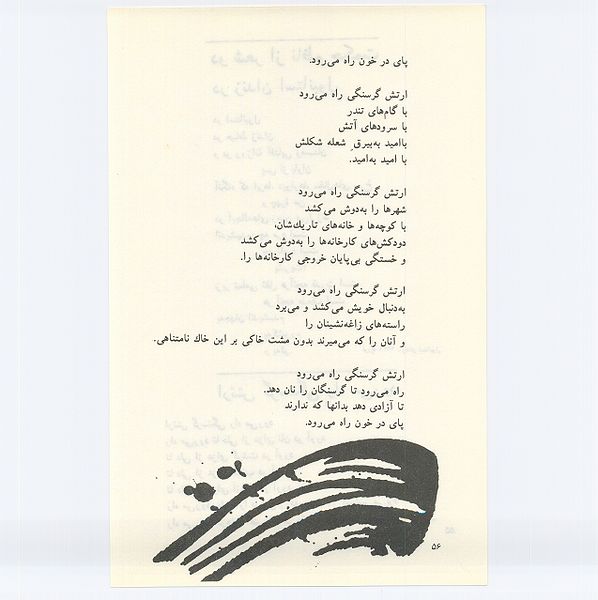 پای در خون راه می‌رود.
ارتش گرسنگی راه می‌رود
با گام‌های تندر
با سرودهای آتش
باامید به‌بیرق شعله شکلش
با امید به‌امید.
ارتش گرسنگی راه می‌رود
شهرها را به‌دوش می‌کشد
با کوچه‌ها و خانه‌های تاریك‌شان،
دودکش‌های کارخانه‌ها را به‌دوش می‌کشد
و خستگی بی‌پایان خروجی کارخانه‌ها را.
ارتش گرسنگی راه می‌رود
به‌دنبال خویش می‌کشد و می‌برد
راسته‌های زاغه‌نشینان را
و آنان را که می‌میرند بدون مشت خاکی بر این خاك نامتناهی.
ارتش گرسنگی راه می‌رود
راه می‌رود تا گرسنگان را نان دهد.
تا آزادی دهد بدانها که ندارند
پای در خون راه می‌رود.
۵۶